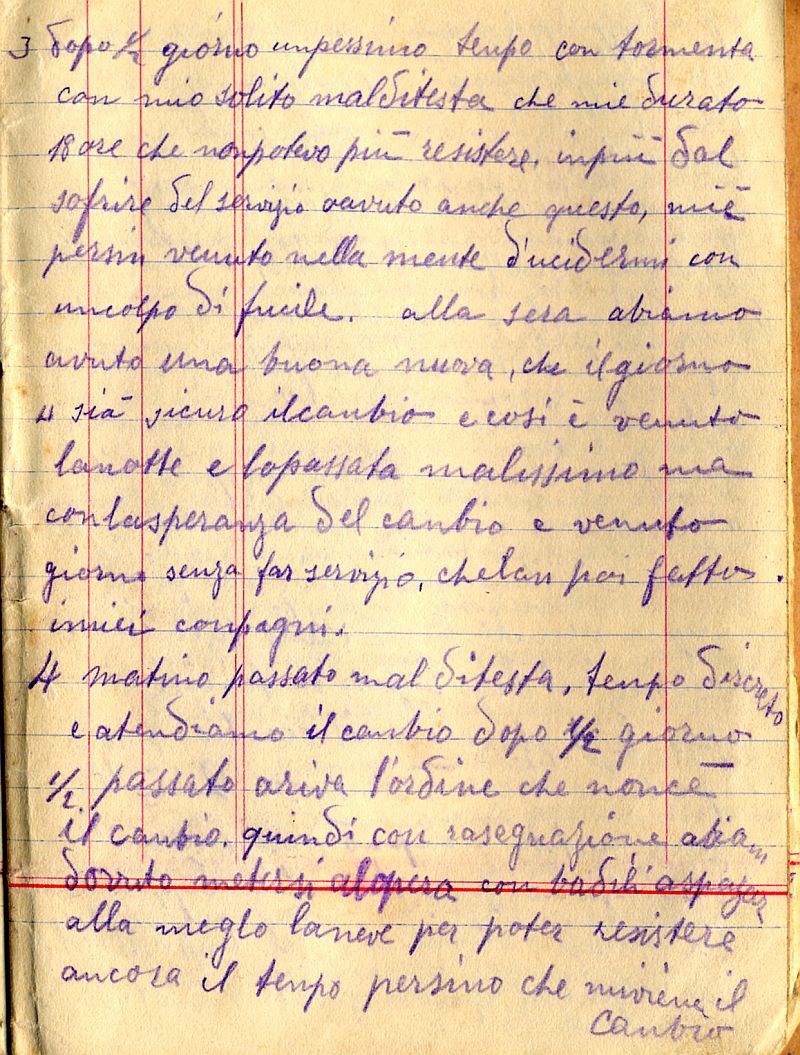 3 dopo 1/2 giorno unpessimo tenpo con tormenta
con mio solito malditesta che mie durato
18 ore che nonpotevo più resistere. inpiù dal
sofrire del servizio oavuto anche questo, miè
persin venuto nella mente d'ucidermi con
uncolpo di fucile. alla sera abiamo
avuto una buona nuova, che ilgiorno
4 sià sicuro ilcanbio e cosi è venuto
lanotte e lopassata malissimo ma
conlasperanza del canbio e venuto
giorno senza far servizio, chelan poi fatto
imiei conpagni.
4 matino passato mal ditesta, tenpo discreto
e atendiamo il canbio dopo 1/2 giorno
1/2 passato ariva l'ordine che noncè
il canbio. quindi con rasegnazione abiam
dovuto metersi alopera con badili aspazar
alla meglo laneve per poter resistere
ancora il tenpo persino che miviene il
canbio